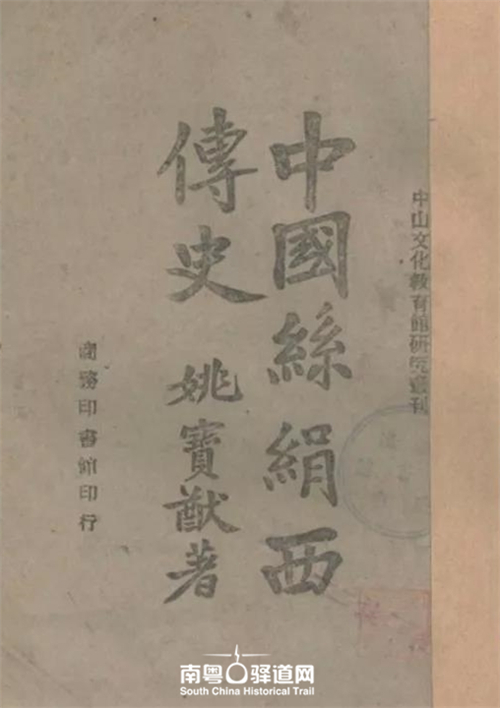 中山文化教育館研究叢刊
中國絲絹西
傳史
姚寶猷著
商務印書館印行
南粤驿道网
South China Historical Trail